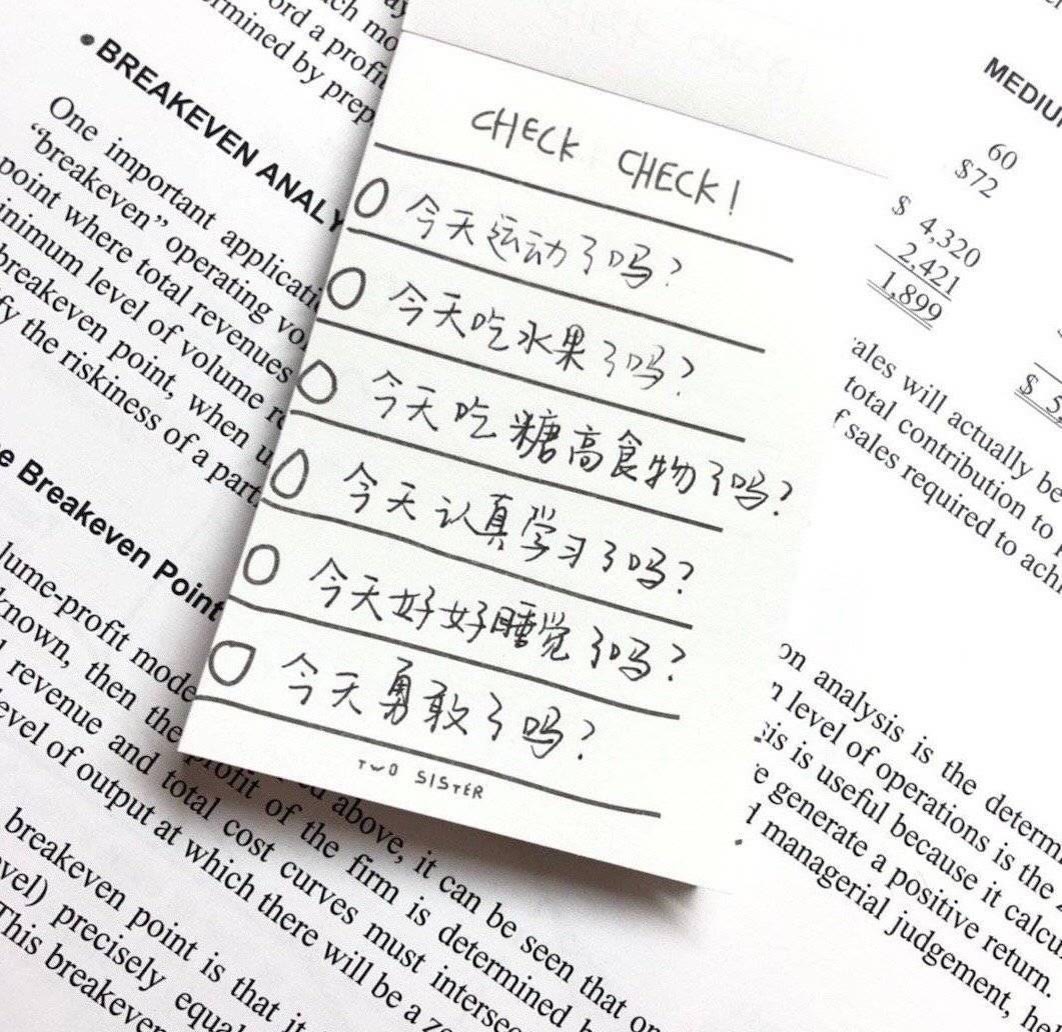 ord a profi
rmined by prep
• BREAKEVEN ANALY
One important applicati
“breakeven” operating vo
point where total revenues
inimum level of volume re
breakeven point, when u
fy the riskiness of a part
e Breakeven Point
lume-profit mode
known, then the profit of the firm is determined
revenue and total cost curves must interse
evel of output at which there will be a ze
above, it can be seen that on
breakeven point is that it
vel) precisely equa
This breakeven
CHECK CHECK!
今天运动了吗?
今天吃水果了吗?
今天吃糖高食物了吗?
今天认真学习了吗?
今天好好睡觉了吗?
今天勇敢了吗?
TWO SISTER
MEDIU
60
$72
$ 4,320
2,421
1,899
$ 5,
ales will actually be
total contribution to
f sales required to achi
on analysis is the determ
n level of operations is the
sis is useful because it calcu
e generate a positive return.
d managerial judgement, he